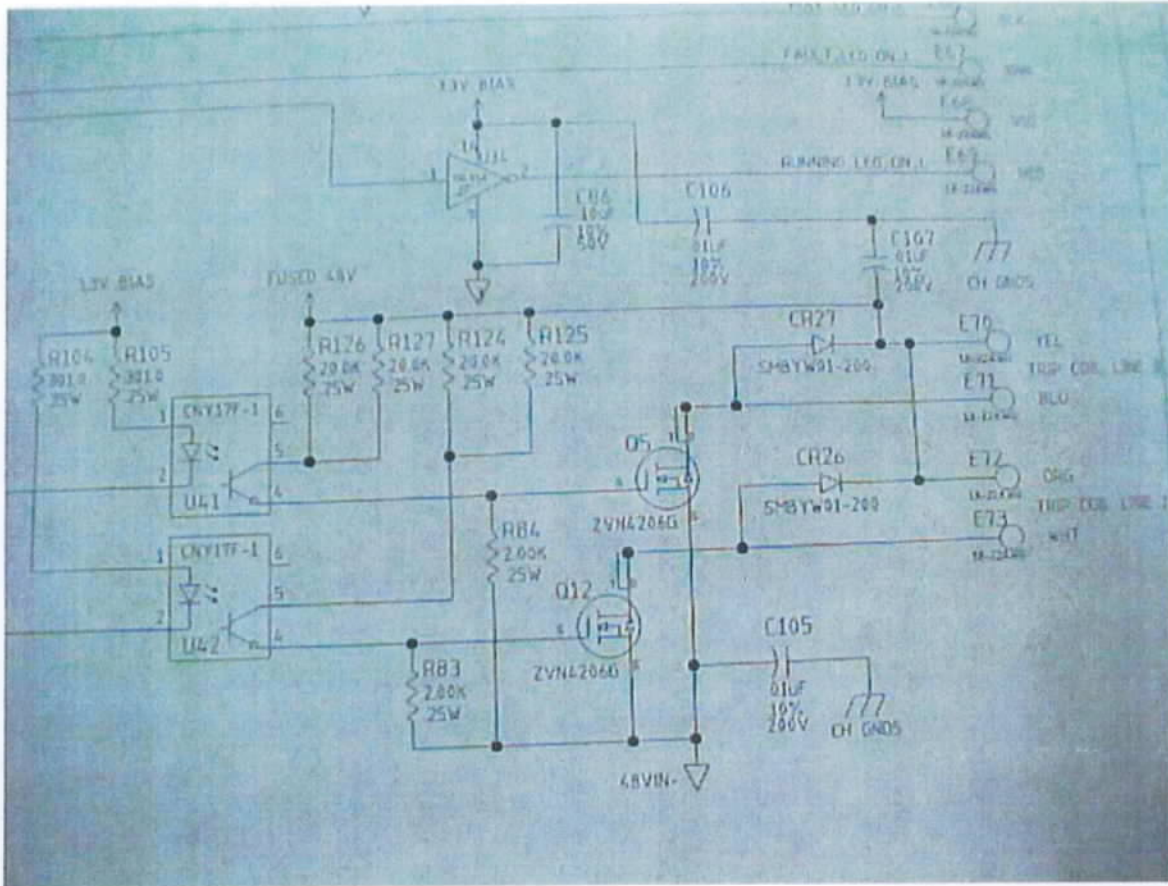 FAULT LED ON L
13V BIAS
13V BIAS
RUNNING LED ON L
E69
C86
10UF
10%
50V
C106
.01UF
10%
200V
C107
.01UF
10%
200V
CH GNDS
13V BIAS
FUSED 48V
R104
301.0
.25W
R105
301.0
.25W
R126
20.0K
.25W
R127
20.0K
.25W
R124
20.0K
.25W
R125
20.0K
.25W
CR27
SMBYW01-200
E70
YEL
TRIP COIL LINE
E71
BLU
CNY17F-1
1
6
5
2
4
U41
Q5
ZVN4206G
CR26
SMBYW01-200
E72
ORG
TRIP COIL LINE
E73
WHT
R84
2.00K
.25W
CNY17F-1
1
6
5
2
4
U42
Q12
ZVN4206G
R83
2.00K
.25W
C105
.01UF
10%
200V
CH GNDS
48VIN-